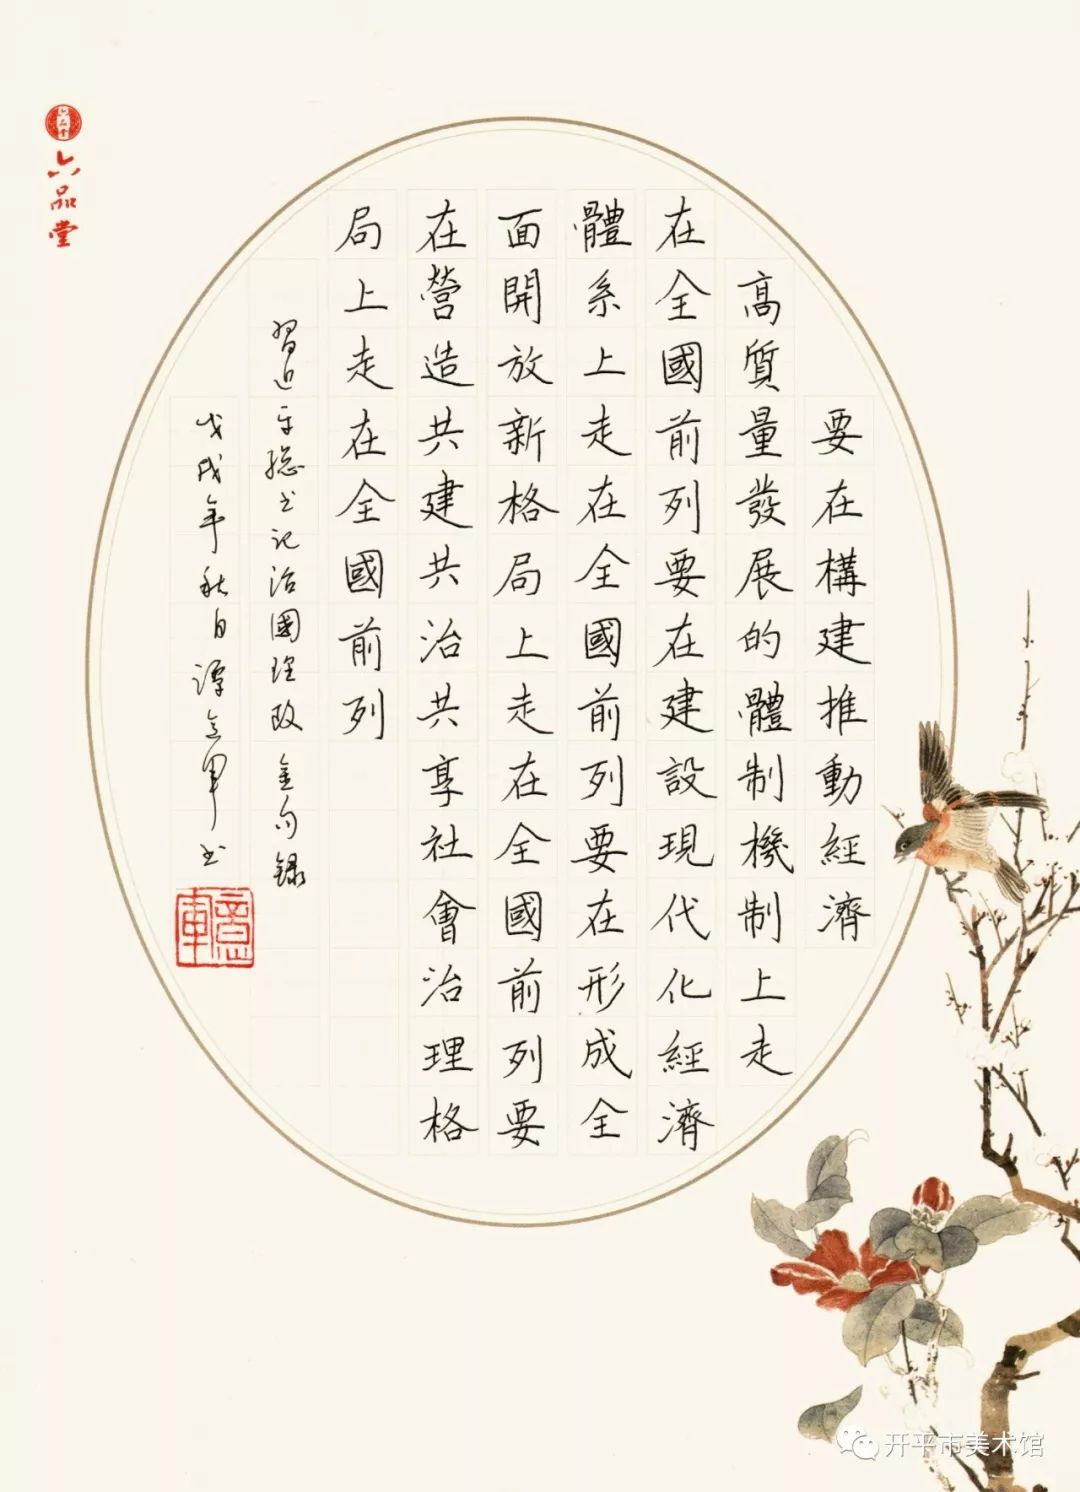 要在構建推動經濟
高質量發展的體制機制上走
在全國前列要在建設現代化經濟
體系上走在全國前列要在形成全
面開放新格局上走在全國前列要
在營造共建共治共享社會治理格
局上走在全國前列
習近平總书記治國理政金句錄
戊戌年秋日譚意軍书
意軍
六品堂
六品堂
开平市美术馆